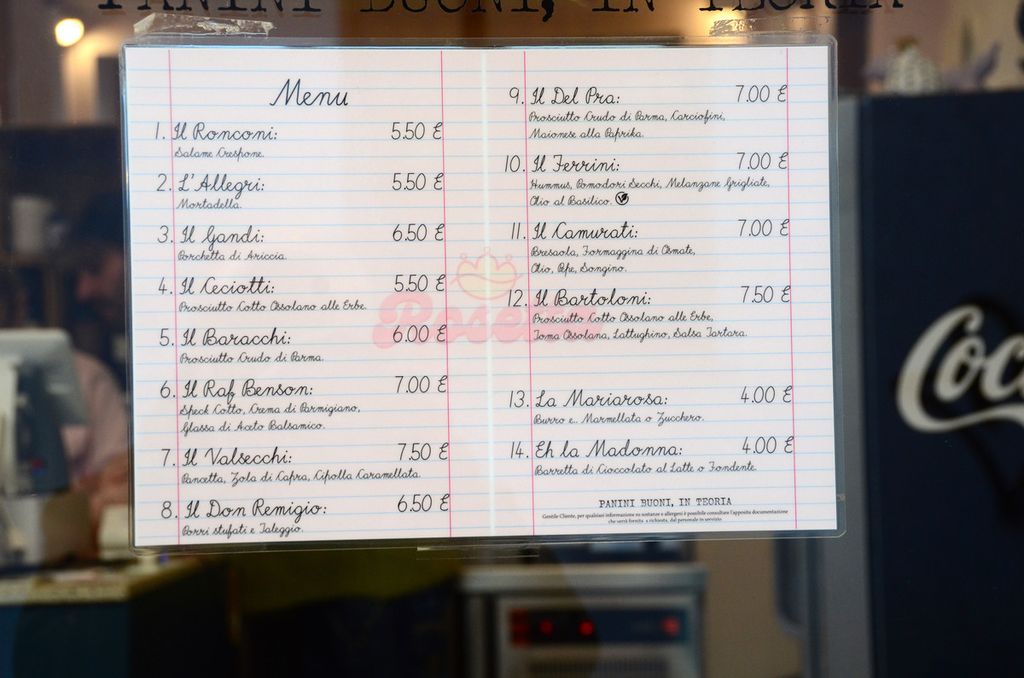 PANINI BUONI, IN TEORIA
Menu
1. Il Ronconi: 5.50 €
Salame Crespone.
2. L'Allegri: 5.50 €
Mortadella.
3. Il Gandi: 6.50 €
Porchetta di Ariccia.
4. Il Ceciotti: 5.50 €
Prosciutto Cotto Ossolano alle Erbe.
5. Il Baracchi: 6.00 €
Prosciutto Crudo di Parma.
6. Il Raf Benson: 7.00 €
Speck Cotto, Crema di Parmigiano,
Glassa di Aceto Balsamico.
7. Il Valsecchi: 7.50 €
Pancetta, Zola di Capra, Cipolla Caramellata.
8. Il Don Remigio: 6.50 €
Porri stufati e Taleggio.
9. Il Del Pra: 7.00 €
Prosciutto Crudo di Parma, Carciofini,
Maionese alla Paprika.
10. Il Ferrini: 7.00 €
Hummus, Pomodori Secchi, Melanzane Grigliate,
Olio al Basilico.
11. Il Camurati: 7.00 €
Bresaola, Formaggina di Osmate,
Olio, Pepe, Songino.
12. Il Bartoloni: 7.50 €
Prosciutto Cotto Ossolano alle Erbe,
Toma Ossolana, Lattughino, Salsa Tartara.
13. La Mariarosa: 4.00 €
Burro e... Marmellata o Zucchero.
14. Eh la Madonna: 4.00 €
Barretta di Cioccolato al Latte o Fondente.
PANINI BUONI, IN TEORIA
Gentile Cliente, per qualsiasi informazione su sostanze e allergeni è possibile consultare l'apposita documentazione
che verrà fornita, a richiesta, dal personale in servizio.
Coc